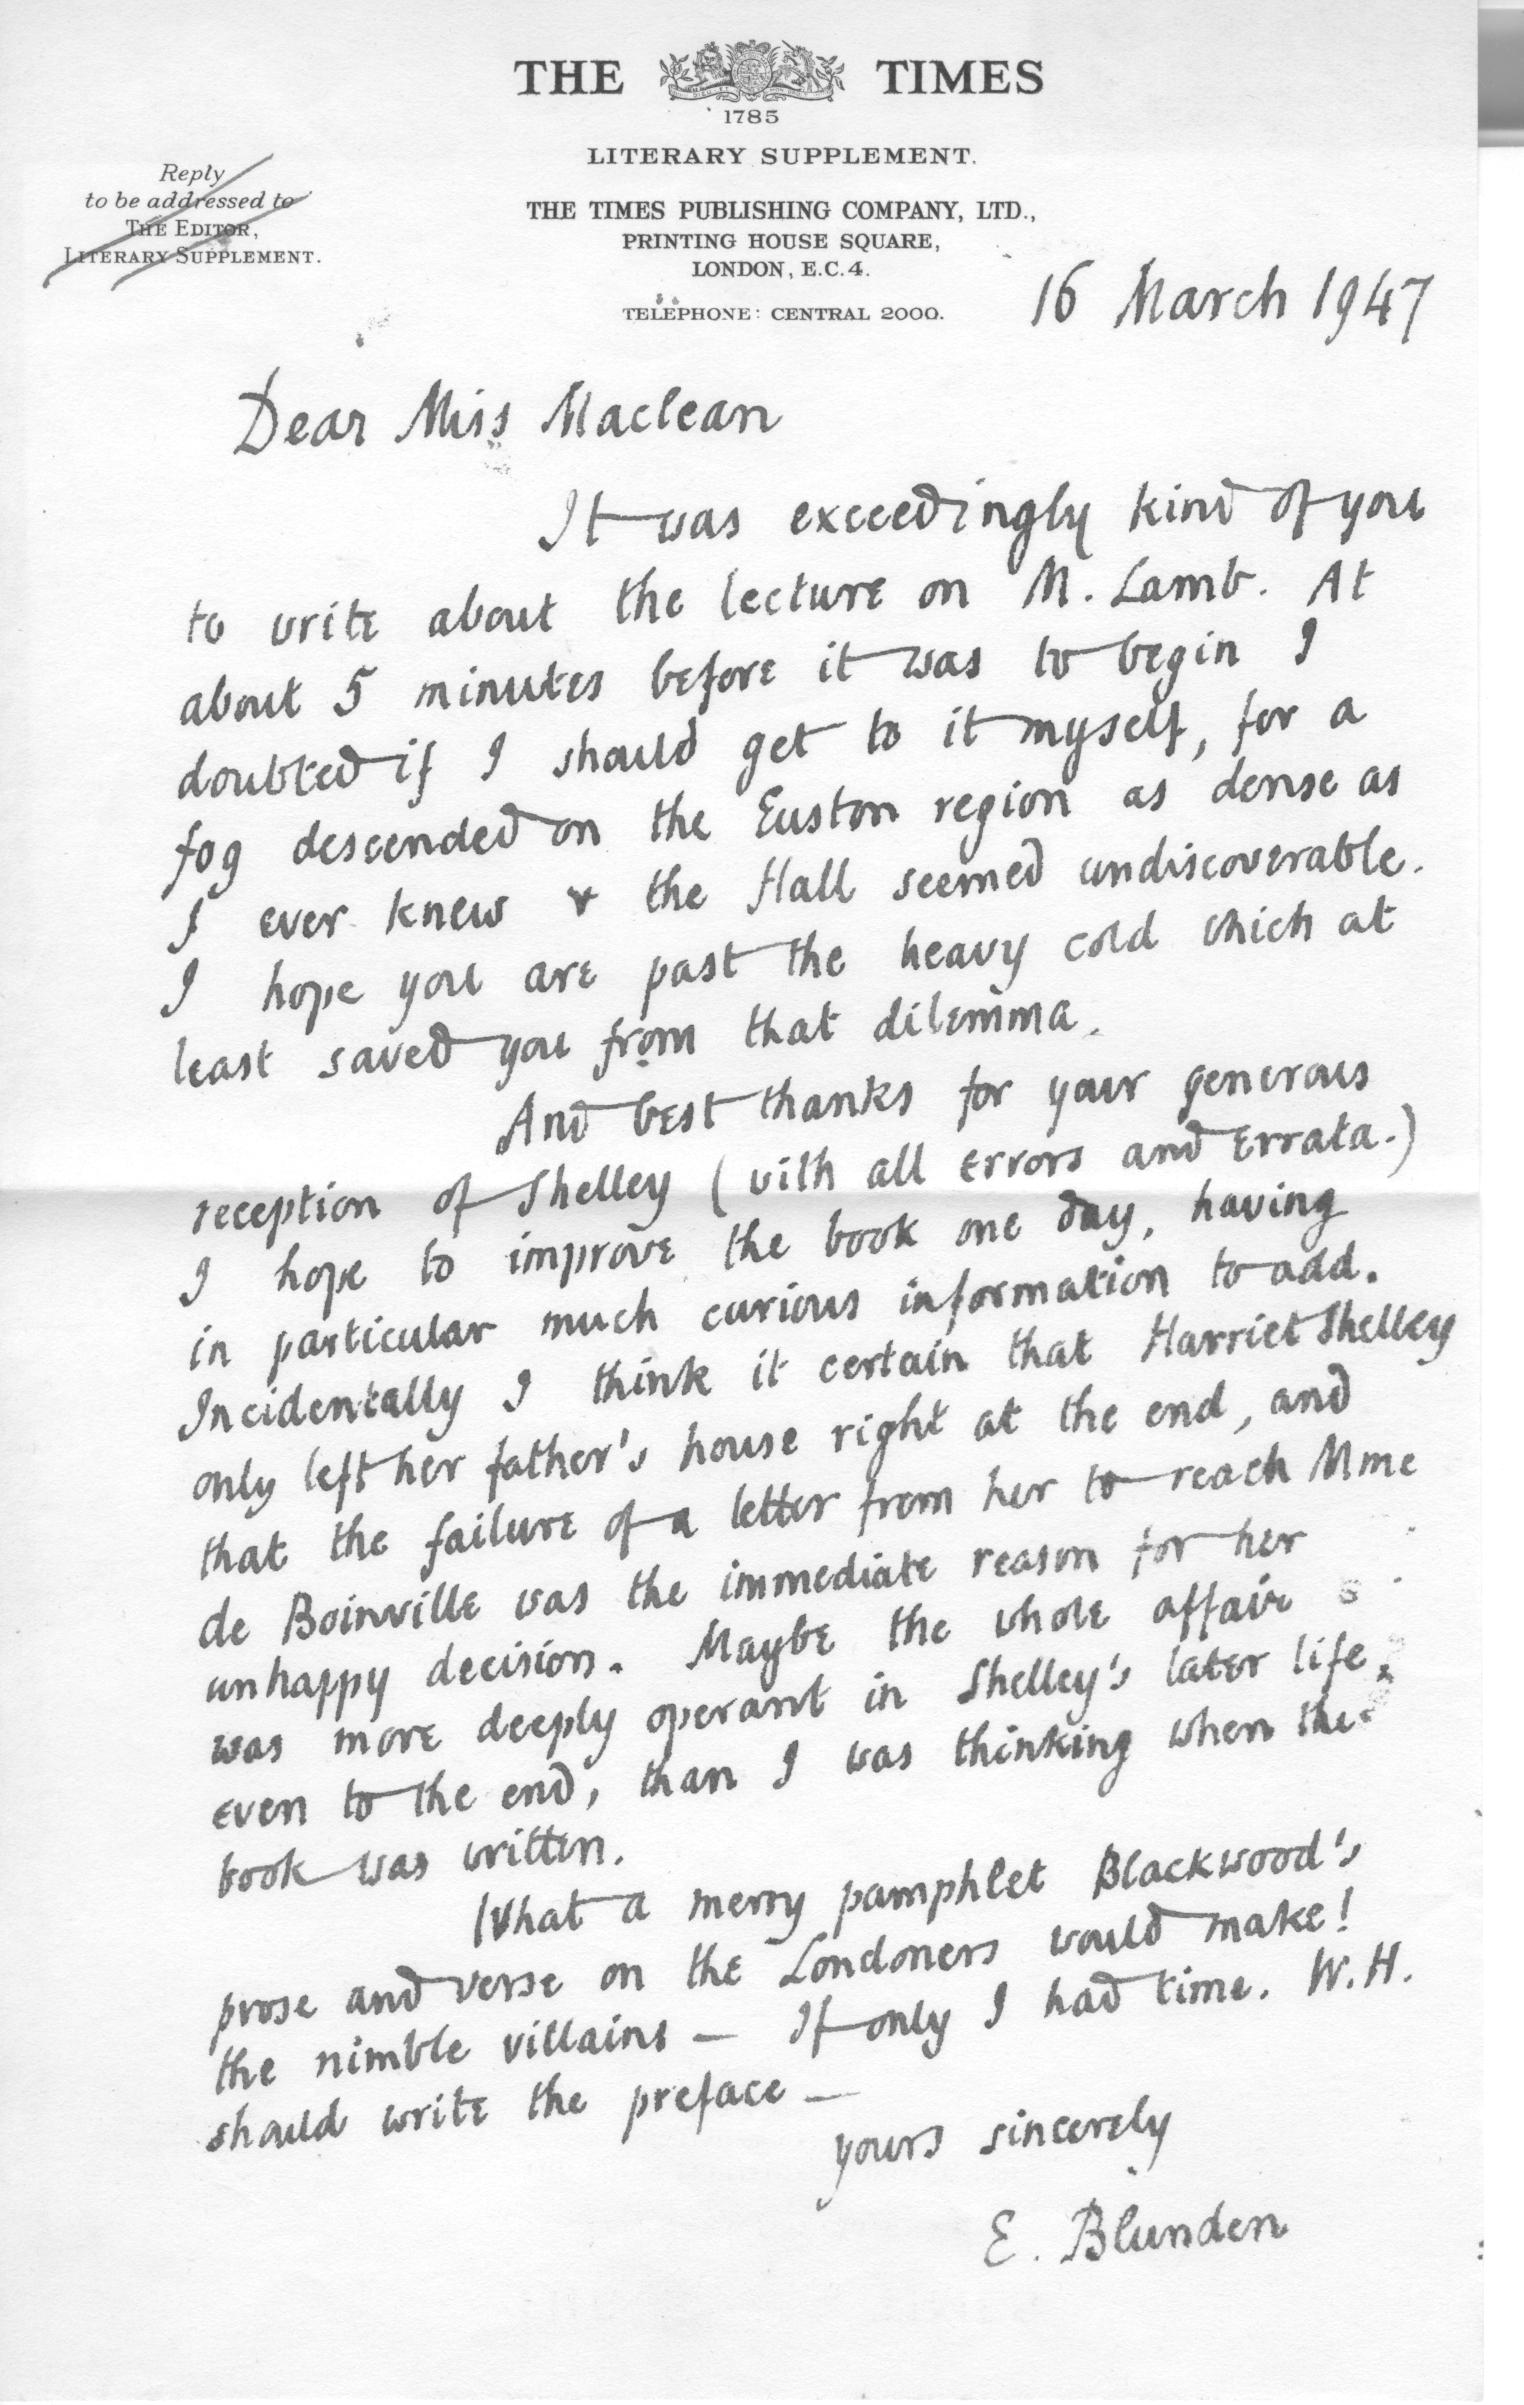 THE TIMES
1785
LITERARY SUPPLEMENT.
Reply
to be addressed to
THE EDITOR,
LITERARY SUPPLEMENT.
THE TIMES PUBLISHING COMPANY, LTD.,
PRINTING HOUSE SQUARE,
LONDON, E.C.4.
TELEPHONE: CENTRAL 2000.
16 March 1947
Dear Miss Maclean
It was exceedingly kind of you
to write about the lecture on M. Lamb. At
about 5 minutes before it was to begin I
doubted if I should get to it myself, for a
fog descended on the Euston region as dense as
I ever knew & the Hall seemed undiscoverable.
I hope you are past the heavy cold which at
least saved you from that dilemma.
And best thanks for your generous
reception of Shelley (with all errors and errata.)
I hope to improve the book one day, having
in particular much curious information to add.
Incidentally I think it certain that Harriet Shelley
only left her father's house right at the end, and
that the failure of a letter from her to reach Mme
de Boinville was the immediate reason for her
unhappy decision. Maybe the whole affair
was more deeply operant in Shelley's later life,
even to the end, than I was thinking when the
book was written.
What a merry pamphlet Blackwood's
prose and verse on the Londoners would make!
the nimble villains – If only I had time. W.H.
should write the preface –
yours sincerely
E. Blunden